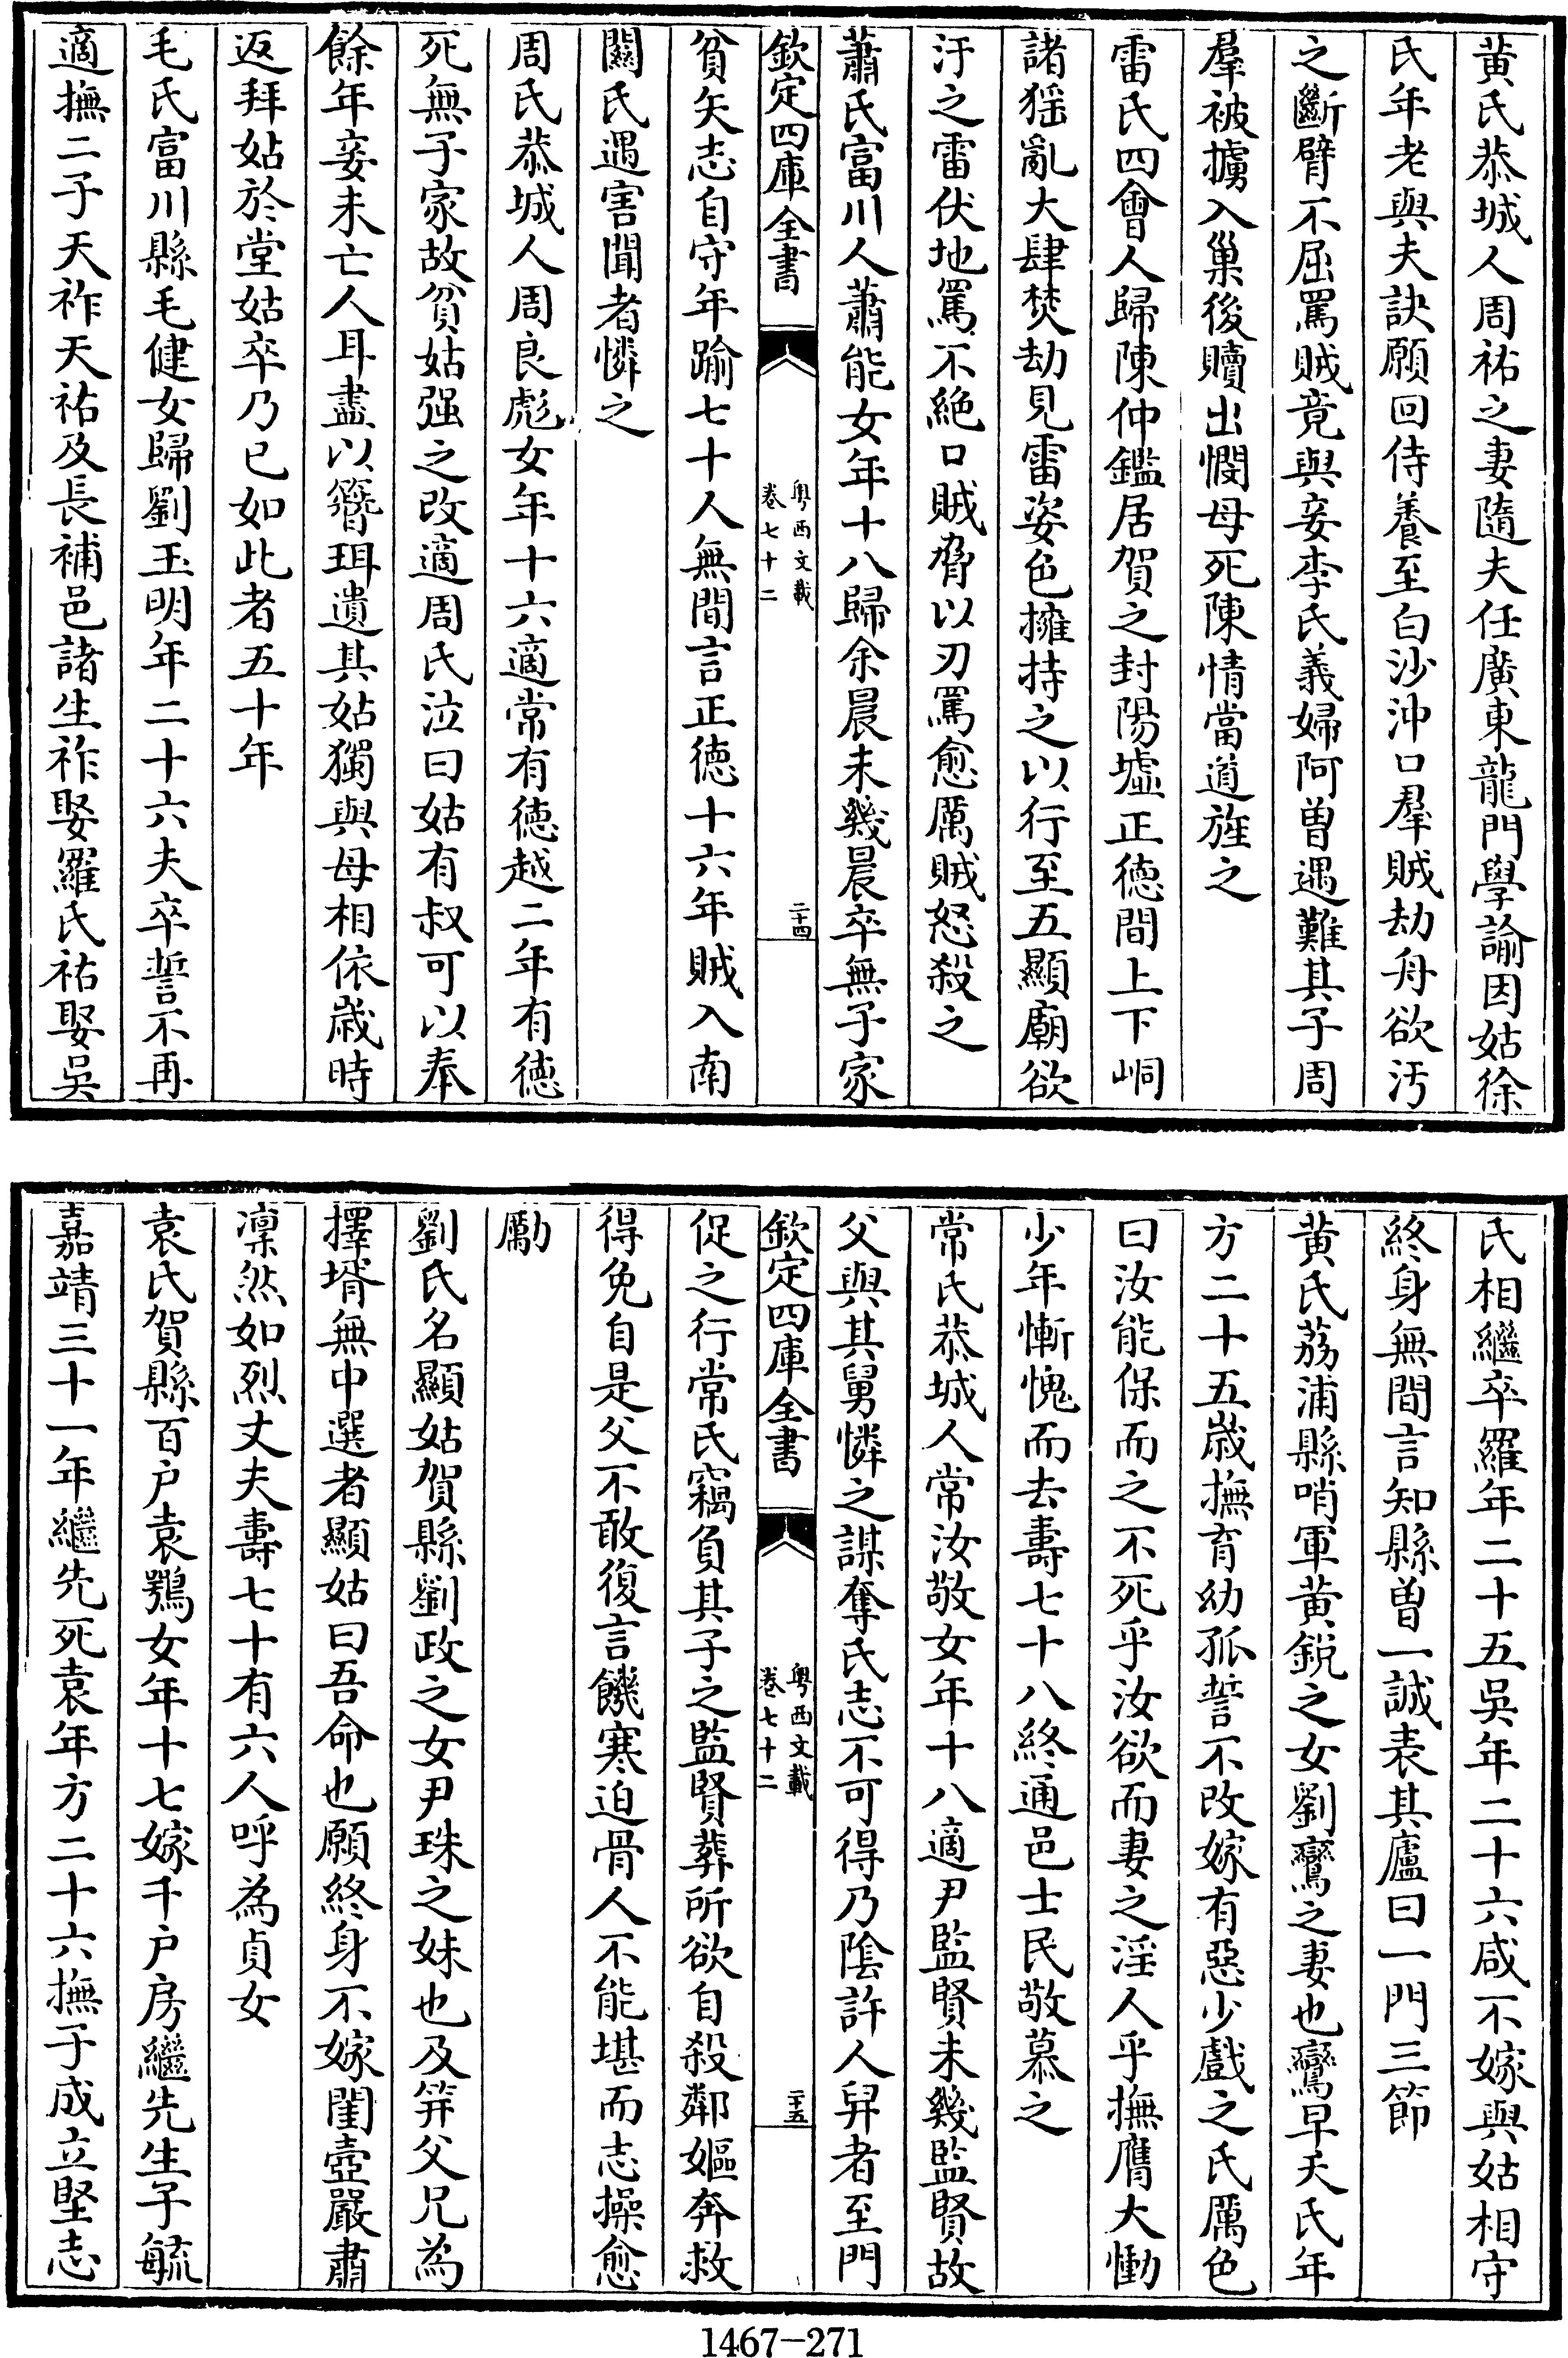 黄氏恭城人周祐之妻隨夫任廣東龍門學諭因姑徐
氏年老與夫訣願回侍養至白沙沖口羣賊劫舟欲汚
之斷臂不屈罵賊竟與妾李氏義婦阿曽遇難其子周
羣被擄入巢後贖出憫母死陳情當道旌之
雷氏四會人歸陳仲鑑居賀之封陽墟正徳間上下峒
諸猺亂大肆焚劫見雷姿色擁持之以行至五顯廟欲
汙之雷伏地罵不絶口賊脅以刃罵愈厲賊怒殺之
蕭氏富川人蕭能女年十八歸余晨未幾晨卒無子家
欽定四庫全書
粤西文載
卷七十二
二十四
貧矢志自守年踰七十人無間言正徳十六年賊入南
關氏遇害聞者憐之
周氏恭城人周良彪女年十六適常有徳越二年有徳
死無子家故貧姑强之改適周氏泣曰姑有叔可以奉
餘年妾未亡人耳盡以簪珥遺其姑獨與母相依歲時
返拜姑於堂姑卒乃已如此者五十年
毛氏富川縣毛健女歸劉玉明年二十六夫卒誓不再
適撫二子天祚天祐及長補邑諸生祚娶羅氏祐娶吳
氏相繼卒羅年二十五吳年二十六咸不嫁與姑相守
終身無間言知縣曽一誠表其廬曰一門三節
黄氏荔浦縣哨軍黄鋭之女劉鸞之妻也鸞早夭氏年
方二十五歲撫育幼孤誓不改嫁有惡少戲之氏厲色
曰汝能保而之不死乎汝欲而妻之淫人乎撫膺大慟
少年慚愧而去夀七十八終通邑士民敬慕之
常氏恭城人常汝敬女年十八適尹監賢未幾監賢故
父與其舅憐之謀奪氏志不可得乃隂許人舁者至門
欽定四庫全書
粤西文載
卷七十二
二十五
促之行常氏竊負其子之監賢葬所欲自殺鄰嫗奔救
得免自是父不敢復言饑寒迫骨人不能堪而志操愈
勵
劉氏名顯姑賀縣劉政之女尹珠之妹也及笄父兄為
擇壻無中選者顯姑曰吾命也願終身不嫁閨壼嚴肅
凛然如烈丈夫夀七十有六人呼為貞女
袁氏賀縣百户袁鶚女年十七嫁千户房繼先生子毓
嘉靖三十一年繼先死袁年方二十六撫子成立堅志
1467-271